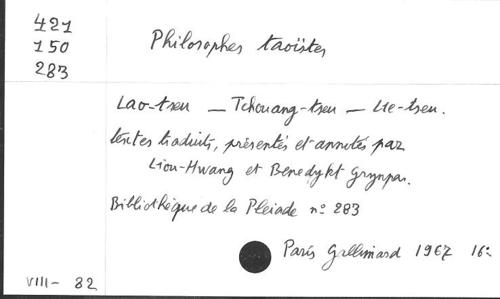 421
150
283
Philosophes taoïstes
Lao-tseu — Tchouang-tseu — Lie-tseu.
textes traduits, présentés et annotés par
Liou-Hwang et Benedykt Grynpas.
Bibliothèque de la Pleiade n° 283
Paris Gallimard 1967 16°
VIII- 82